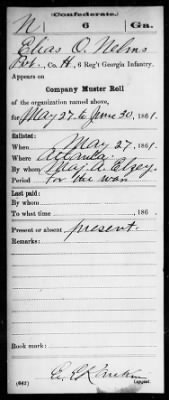 (Confederate.)
N 6 Ga.
Elias O. Nelms
Pvt., Co. H, 6 Reg't Georgia Infantry.
Appears on
Company Muster Roll
of the organization named above,
for May 27 to June 30, 1861.
Enlisted:
When May 27, 1861.
Where Atlanta
By whom Maj. A.
Period for the war
Last paid:
By whom
To what time , 186 .
Present or absent present.
Remarks:
Book mark:
(642) Copyist.